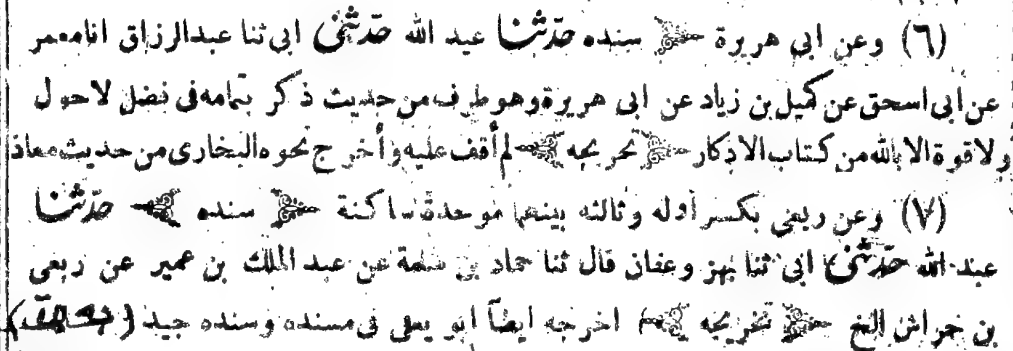 (٦) وعن ابي هريرة سنده حدّثنا عبد الله حدّثنى ابى ثنا عبدالرزاق انامعمر
عن ابى اسحق عن كميل بن زياد عن ابى هريرة وهو طرف من حديث ذكر بتمامه فى فضل لاحول
ولاقوة الا بالله من كتاب الاذكار تخريجه لم أقف عليه وأخرج نحوه البخارى من حديث معاذ
(٧) وعن ربعي بكسر أوله وثالثه بينهما موحدة ساكنة سنده حدّثنا
عبد الله حدّثنى ابى ثنا بهز وعفان قال ثنا حماد بن سلمة عن عبد الملك بن عمير عن ربعى
بن حراش الخ تخريجه اخرجه ايضاً ابو يعلى فى مسنده وسنده جيد